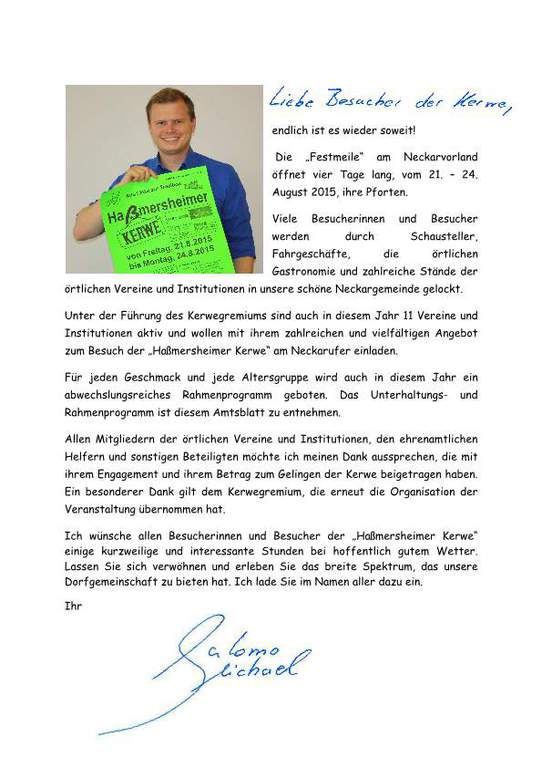 Liebe Besucher der Kerwe,
endlich ist es wieder soweit!
Die „Festmeile“ am Neckarvorland
öffnet vier Tage lang, vom 21. – 24.
August 2015, ihre Pforten.
Haßmersheimer
KERWE
von Freitag, 21.8.2015
bis Montag, 24.8.2015
Viele Besucherinnen und Besucher
werden durch Schausteller,
Fahrgeschäfte, die örtlichen
Gastronomie und zahlreiche Stände der
örtlichen Vereine und Institutionen in unsere schöne Neckargemeinde gelockt.
Unter der Führung des Kerwegremiums sind auch in diesem Jahr 11 Vereine und
Institutionen aktiv und wollen mit ihrem zahlreichen und vielfältigen Angebot
zum Besuch der „Haßmersheimer Kerwe“ am Neckarufer einladen.
Für jeden Geschmack und jede Altersgruppe wird auch in diesem Jahr ein
abwechslungsreiches Rahmenprogramm geboten. Das Unterhaltungs- und
Rahmenprogramm ist diesem Amtsblatt zu entnehmen.
Allen Mitgliedern der örtlichen Vereine und Institutionen, den ehrenamtlichen
Helfern und sonstigen Beteiligten möchte ich meinen Dank aussprechen, die mit
ihrem Engagement und ihrem Betrag zum Gelingen der Kerwe beigetragen haben.
Ein besonderer Dank gilt dem Kerwegremium, die erneut die Organisation der
Veranstaltung übernommen hat.
Ich wünsche allen Besucherinnen und Besucher der „Haßmersheimer Kerwe“
einige kurzweilige und interessante Stunden bei hoffentlich gutem Wetter.
Lassen Sie sich verwöhnen und erleben Sie das breite Spektrum, das unsere
Dorfgemeinschaft zu bieten hat. Ich lade Sie im Namen aller dazu ein.
Ihr
Salomo
Michael